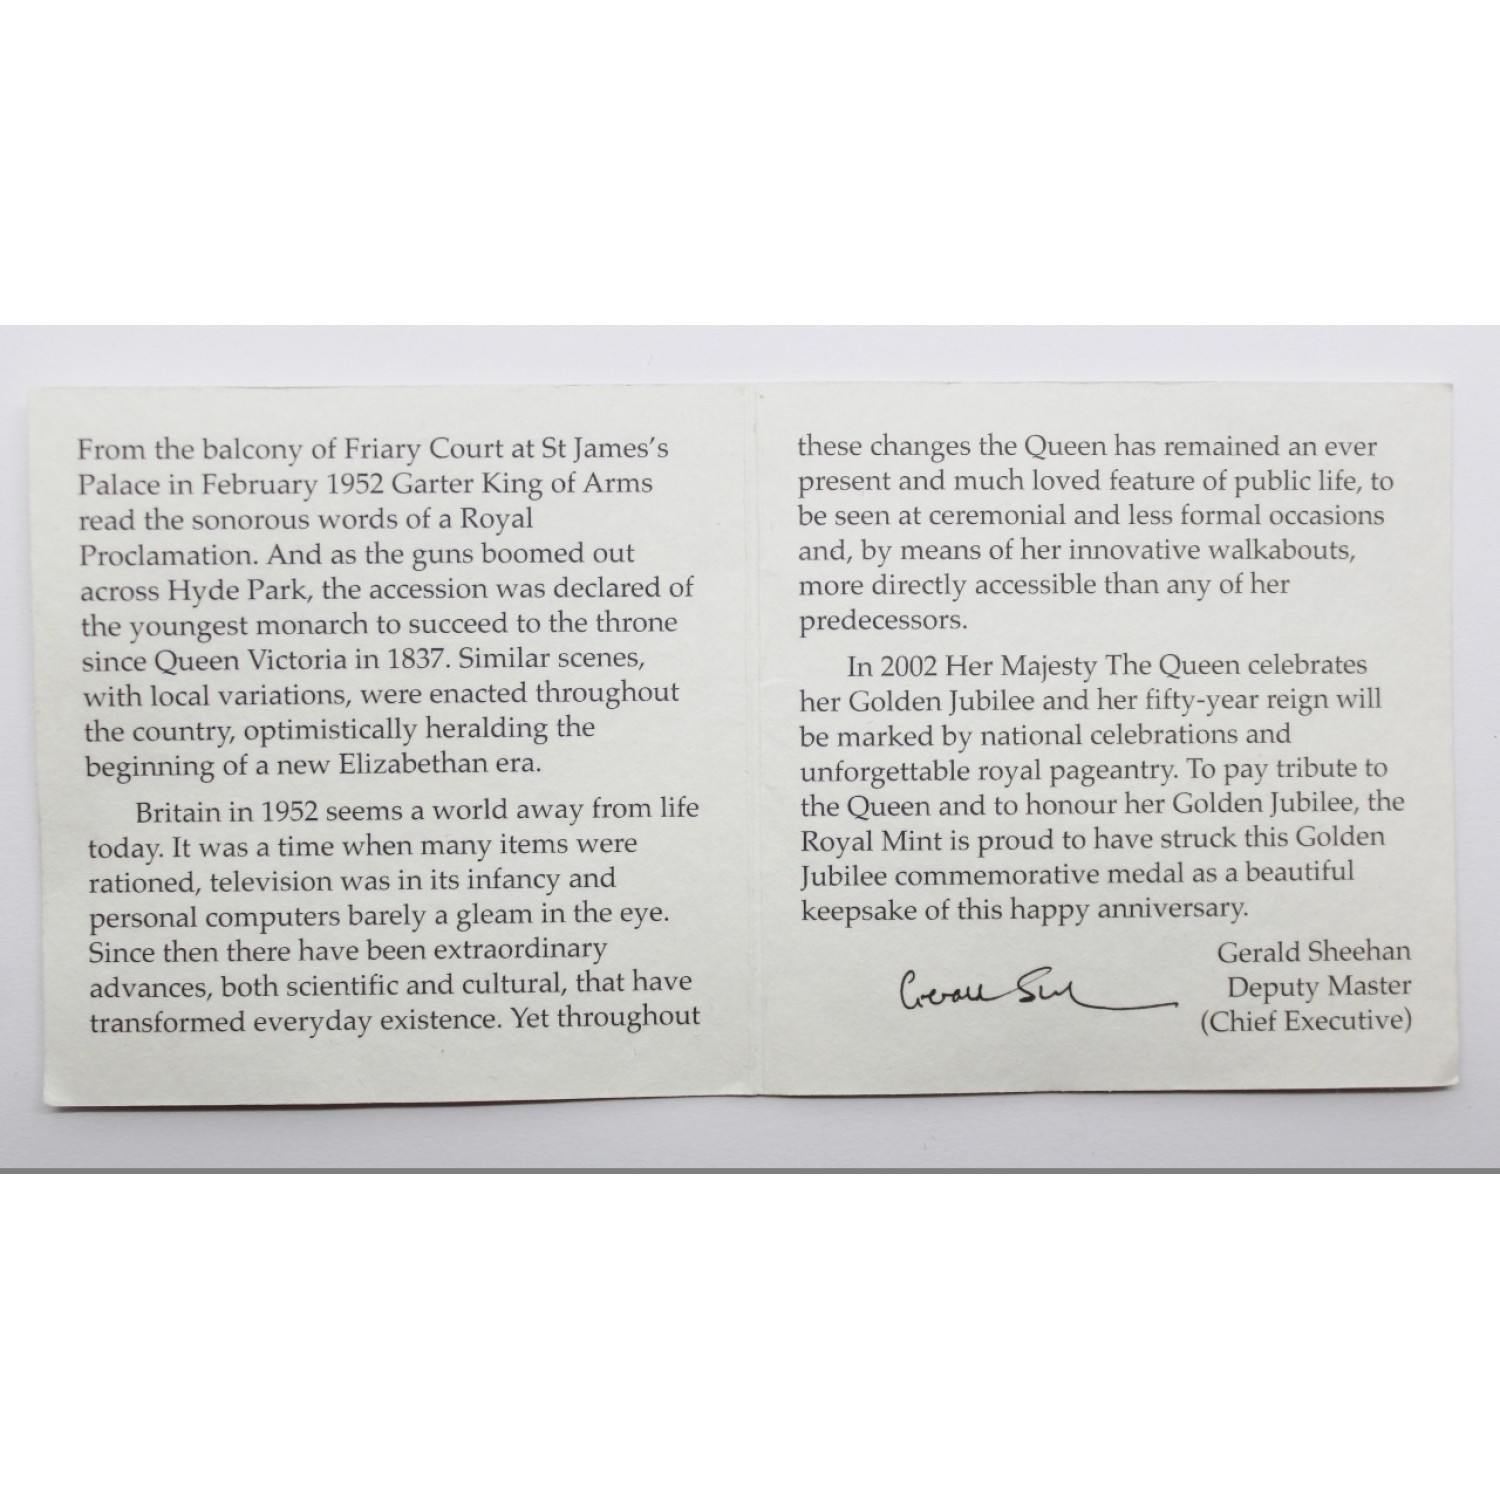 From the balcony of Friary Court at St James's
Palace in February 1952 Garter King of Arms
read the sonorous words of a Royal
Proclamation. And as the guns boomed out
across Hyde Park, the accession was declared of
the youngest monarch to succeed to the throne
since Queen Victoria in 1837. Similar scenes,
with local variations, were enacted throughout
the country, optimistically heralding the
beginning of a new Elizabethan era.
Britain in 1952 seems a world away from life
today. It was a time when many items were
rationed, television was in its infancy and
personal computers barely a gleam in the eye.
Since then there have been extraordinary
advances, both scientific and cultural, that have
transformed everyday existence. Yet throughout
these changes the Queen has remained an ever
present and much loved feature of public life, to
be seen at ceremonial and less formal occasions
and, by means of her innovative walkabouts,
more directly accessible than any of her
predecessors.
In 2002 Her Majesty The Queen celebrates
her Golden Jubilee and her fifty-year reign will
be marked by national celebrations and
unforgettable royal pageantry. To pay tribute to
the Queen and to honour her Golden Jubilee, the
Royal Mint is proud to have struck this Golden
Jubilee commemorative medal as a beautiful
keepsake of this happy anniversary.
Gerald Sheehan
Deputy Master
(Chief Executive)